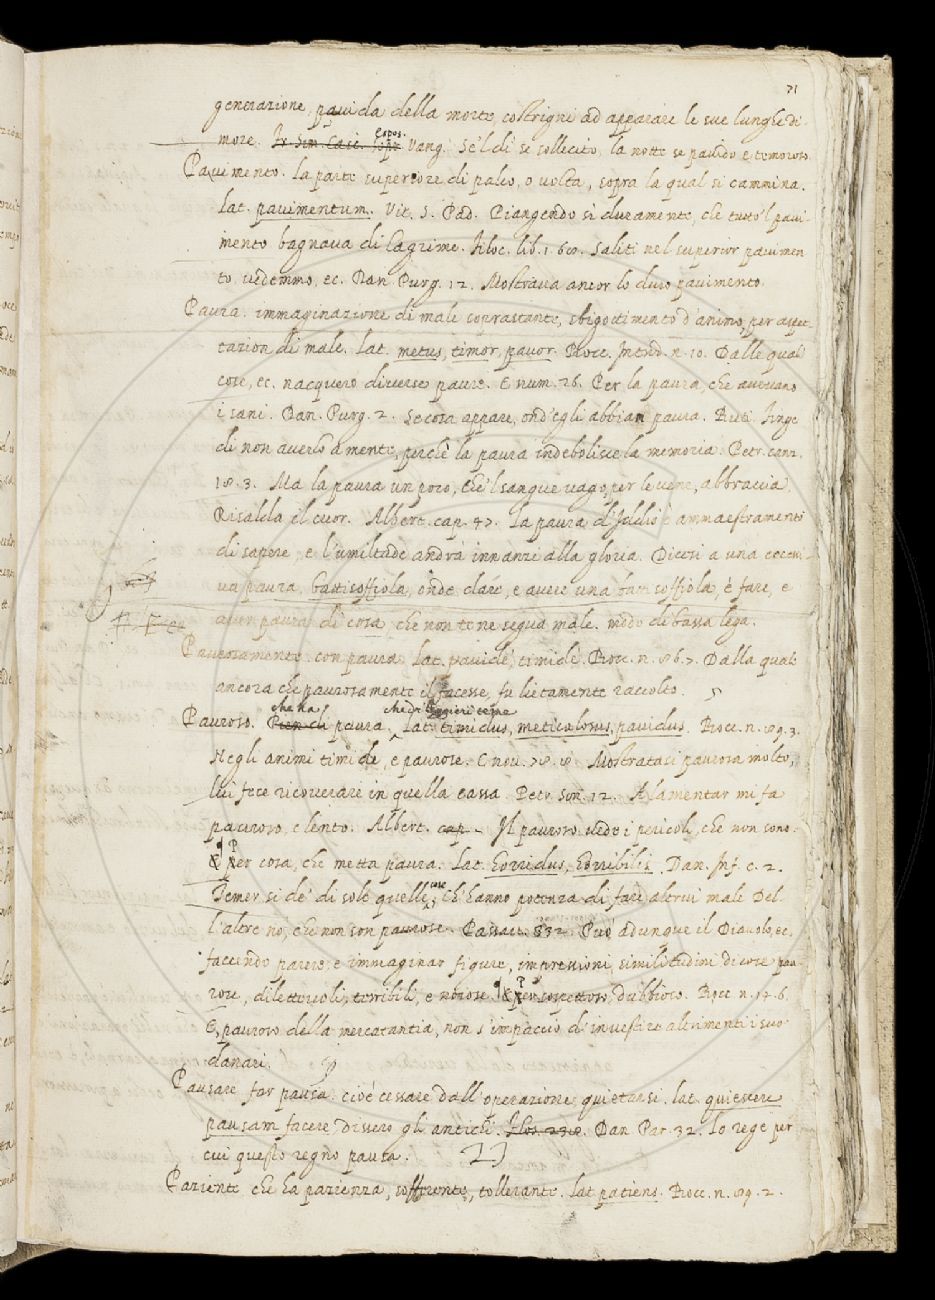 71
generazione pavida della morte, costrigni ad apparare le sue lunghe di
more. Fr. Sim. Casc. sopr espos. Vang. Se'l dì se sollecito, la notte se pavido e temoroso.
Pavimento. la parte superiore di palco, o volta, sopra la qual si cammina.
lat. pavimentum. Vit. S. Pad. Piangendo sì duramente, che tutto'l pavi-
mento bagnava di lagrime. Filoc. lib. 1. 60. Saliti nel superior pavimen
to, vedemmo, ec. Dan. Purg. 12. Mostrava ancor lo duro pavimento.
Paura. immaginazione di male soprastante, sbigottimento d'animo, per aspet-
tazion di male. Lat. metus, timor, pavor. Bocc. Introd. n. 10. Dalle quali
cose, ec. nacquero diverse paure. E num. 26. Per la paura, che avevano
i sani. Dan. Purg. 2. Se cosa appare, ond'egli abbian paura. Buti. Finge
di non averlo a mente, perchè la paura indebolisce la memoria. Petr. canz.
18. 3. Ma la paura un poco, che'l sangue vago, per le vene, abbraccia,
Risalda il cuor. Albert. cap. 47. la paura d'Iddio è ammaestramento
di sapere, e l'umiltade andrà innanzi alla gloria. Dicesi a una eccessi-
va paura, battisoffiola, onde dare, e avere una battisoffiola, è fare, e
aver paura di cosa che non te ne segua male. modo di bassa lega.
Paurosamente. con paura. Lat. pavidè, timidè. Bocc. n. 86. 7. Dalla quale
ancora che paurosamente il facesse, fu lietamente raccolto.
Pauroso. Pien di che ha paura, che di leggieri teme lat. timidus, meticulosus, pavidus. Bocc. n. 89. 3.
Negli animi timide, e paurose. E nov. 78. 8. Mostratasi paurosa molto,
lui fece ricoverare in quella cassa. Petr. Son. 12. A lamentar mi fa
pauroso, e lento. Albert. cap. Il pauroso vede i pericoli, che non sono.
Per cosa, che metta paura. Lat. horridus, horribilis. Dan. Inf. c. 2.
Temer si dè di sole quelle cose, Ch'hanno potenza di fare altrui male Del-
l'altre no, che non son paurose. Passav. 332. Può adunque il Diavolo, ec.
faccendo parere, e immaginar figure, impressioni, similitudini di cose pau-
rose, dilettevoli, terribili, e noiose. Per sospettoso, dubbioso. Bocc. n. 14. 6.
E, pauroso della mercatantia, non s'impacciò d'investire altrimenti i suoi
danari.
Pausare. far pausa: cioè cessare dall'operazione, quietarsi. lat. quiescere
pausam facere, dissero gli antichi. Dan. Par. 32. Lo rege per
cui questo regno pausa.
Paziente. che ha pazienza, sofferente, tollerante. lat. patiens. Bocc. n. 89. 2.